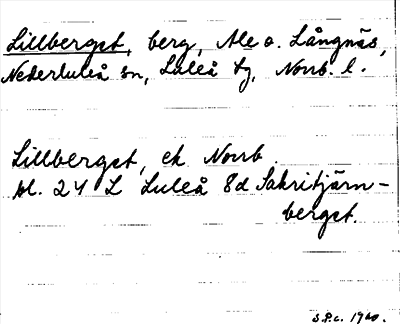 Lillberget, berg, Ale o. Långnäs,
Nederluleå sn, Luleå tg, Norrb. l.
Lillberget, ek Norrb.
bl. 24 L Luleå 8d Sakritjärn-
berget.
S.P.c. 1960.